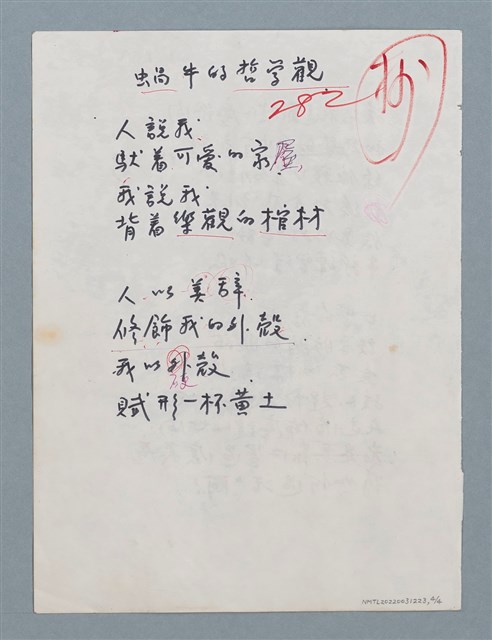 蝸牛的哲学觀
282
抄
人說我
馱着可愛的家屋
我說我
背着樂觀的棺材
人以美辭
修飾我的外殼
我以外殼
賦形一杯黃土
NMTL20220031223,